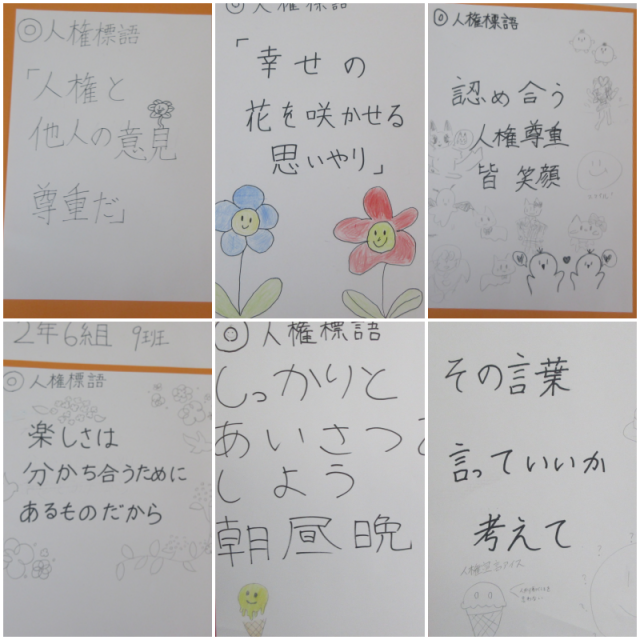 ◎人権標語
「人権と
他人の意見
尊重だ」
◎人権標語
「幸せの
花を咲かせる
思いやり」
◎人権標語
認め合う
人権尊重
皆笑顔
2年6組 9班
◎人権標語
楽しさは
分かち合うために
あるものだから
◎人権標語
しっかりと
あいさつ
しよう
朝昼晩
その言葉
言っていいか
考えて